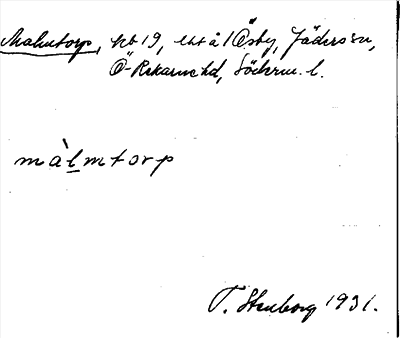 Malmtorp, hb 19, uta å 1 Ösby, Jäders sn,
Ö-Rekarne hd, Söderm. l.
màlmtorp
T. Stenborg 1931.